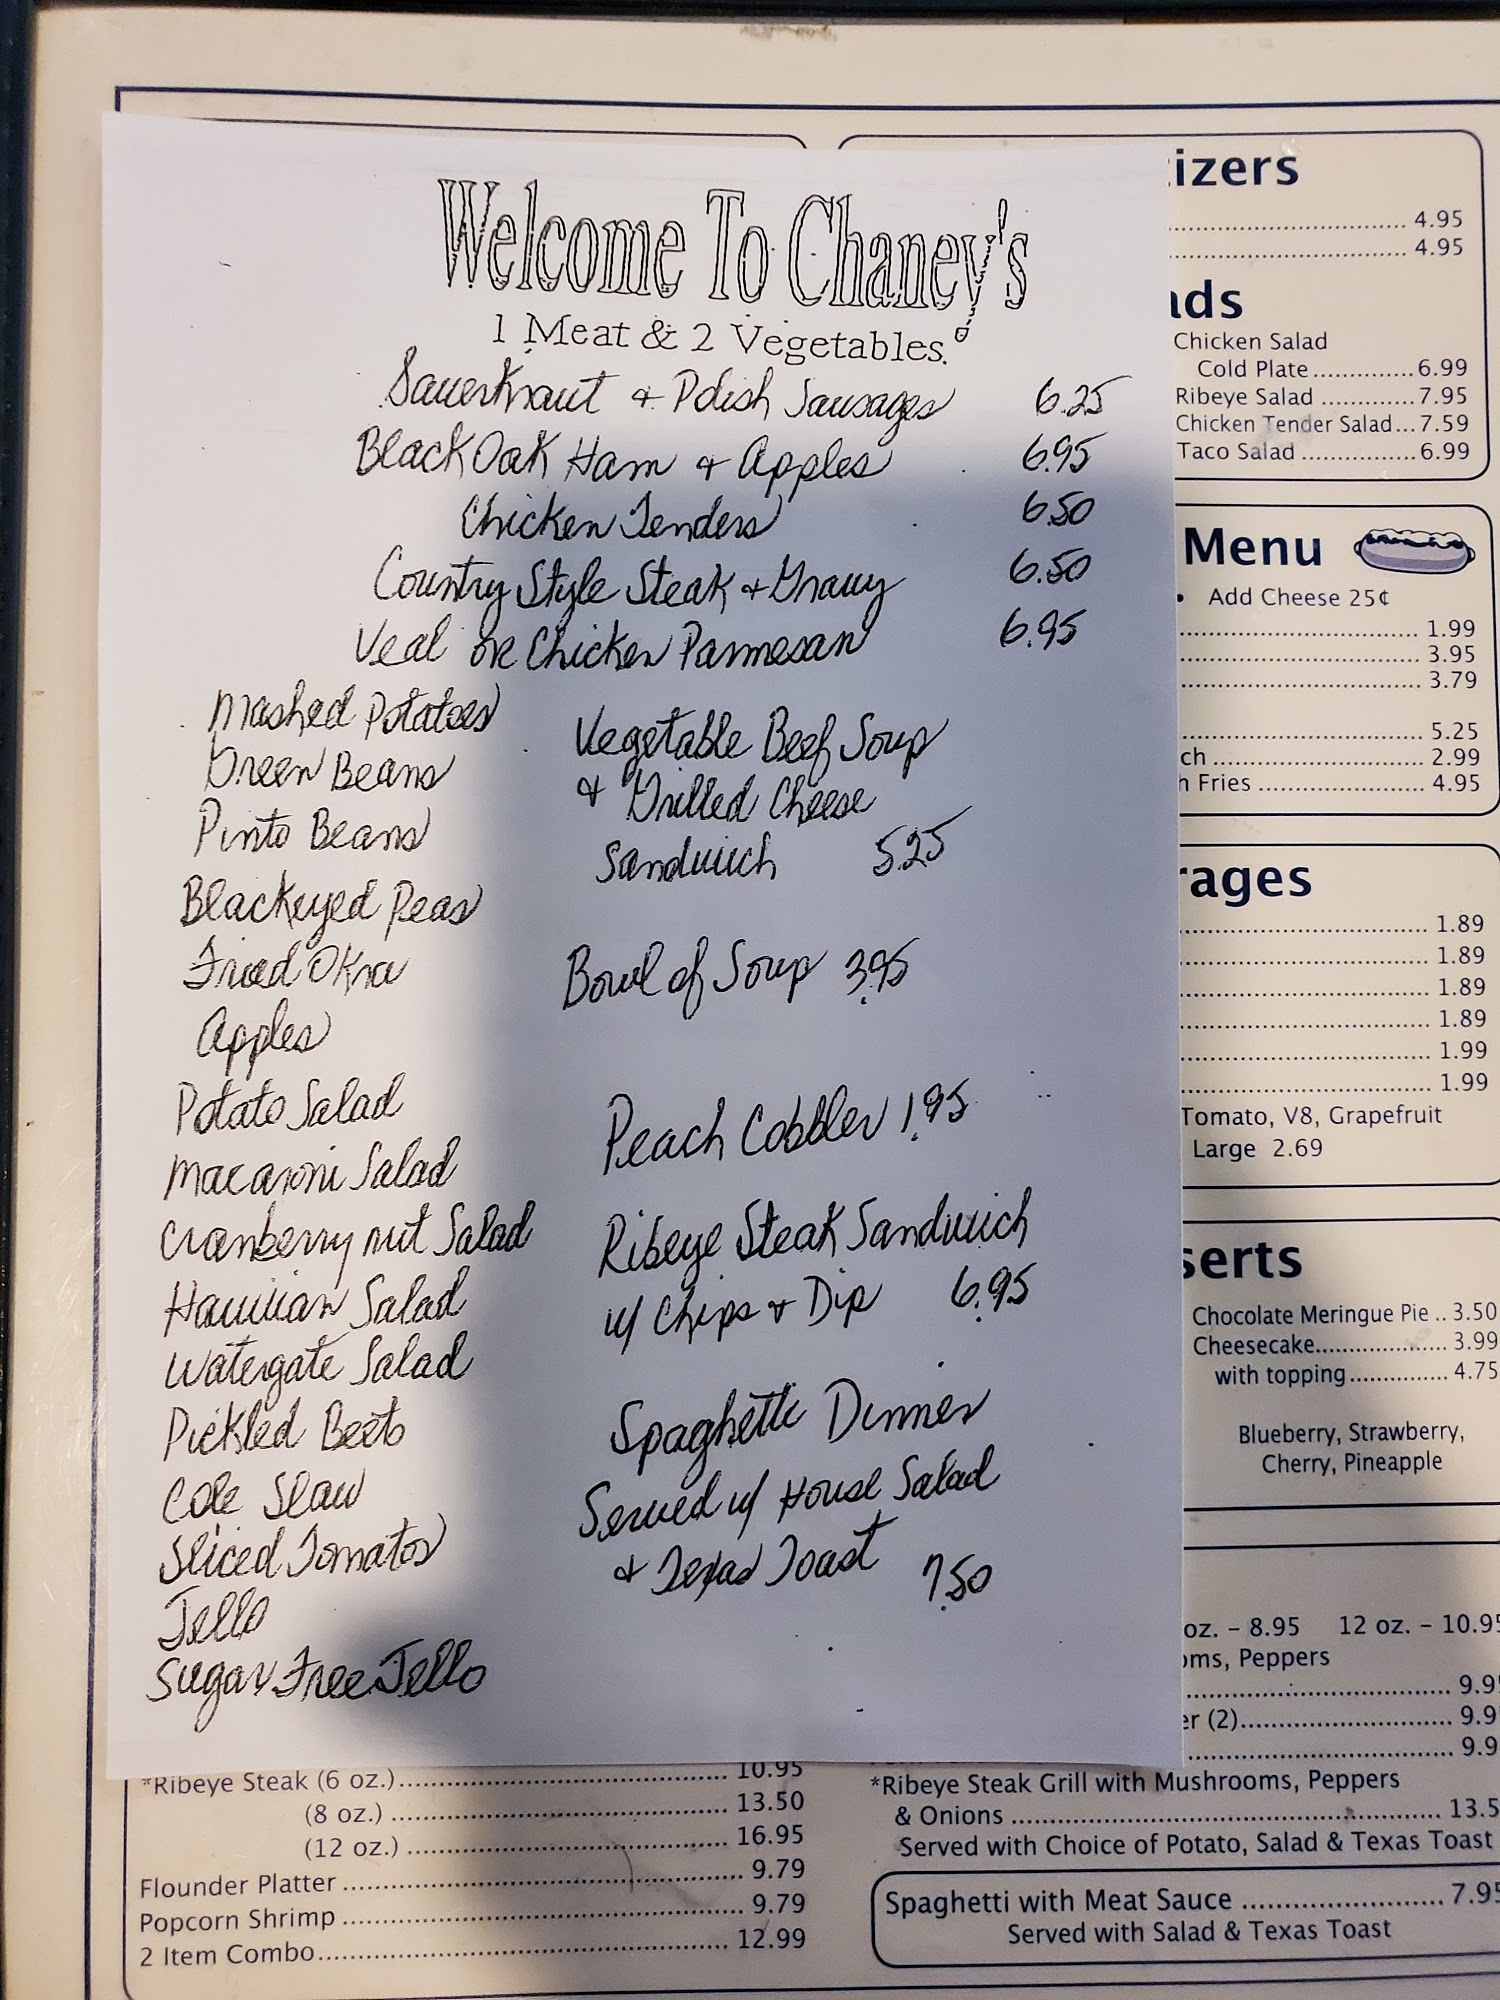 Welcome To Chaney's
1 Meat & 2 Vegetables
Sauerkraut & Polish Sausages 6.25
Black Oak Ham & Apples 6.95
Chicken Tenders 6.50
Country Style Steak & Gravy 6.50
Veal or Chicken Parmesan 6.95
Mashed Potatoes
Green Beans
Pinto Beans
Blackeyed Peas
Fried Okra
Apples
Potato Salad
Macaroni Salad
Cranberry nut Salad
Hawiian Salad
Watergate Salad
Pickled Beets
Cole Slaw
Sliced Tomatos
Jello
Sugar Free Jello
Vegetable Beef Soup
& Grilled Cheese
Sandwich 5.25
Bowl of Soup 3.95
Peach Cobbler 1.95
Ribeye Steak Sandwich
w/ Chips & Dip 6.95
Spaghetti Dinner
Served w/ House Salad
& Texas Toast 7.50
izers
4.95
4.95
ads
Chicken Salad
Cold Plate..............6.99
Ribeye Salad ..............7.95
Chicken Tender Salad...7.59
Taco Salad .................6.99
Menu
• Add Cheese 25¢
1.99
3.95
3.79
5.25
ch ............................ 2.99
h Fries ...................... 4.95
rages
1.89
1.89
1.89
1.89
1.99
1.99
Tomato, V8, Grapefruit
Large 2.69
serts
Chocolate Meringue Pie .. 3.50
Cheesecake................... 3.99
with topping................ 4.75
Blueberry, Strawberry,
Cherry, Pineapple
oz. – 8.95 12 oz. – 10.95
oms, Peppers
9.9
er (2)............................ 9.9
9.9
*Ribeye Steak (6 oz.)........................................ 10.95
(8 oz.) ........................................ 13.50
(12 oz.) ........................................ 16.95
Flounder Platter ........................................ 9.79
Popcorn Shrimp ........................................ 9.79
2 Item Combo........................................ 12.99
*Ribeye Steak Grill with Mushrooms, Peppers
& Onions ........................................ 13.5
Served with Choice of Potato, Salad & Texas Toast
Spaghetti with Meat Sauce ........................ 7.95
Served with Salad & Texas Toast